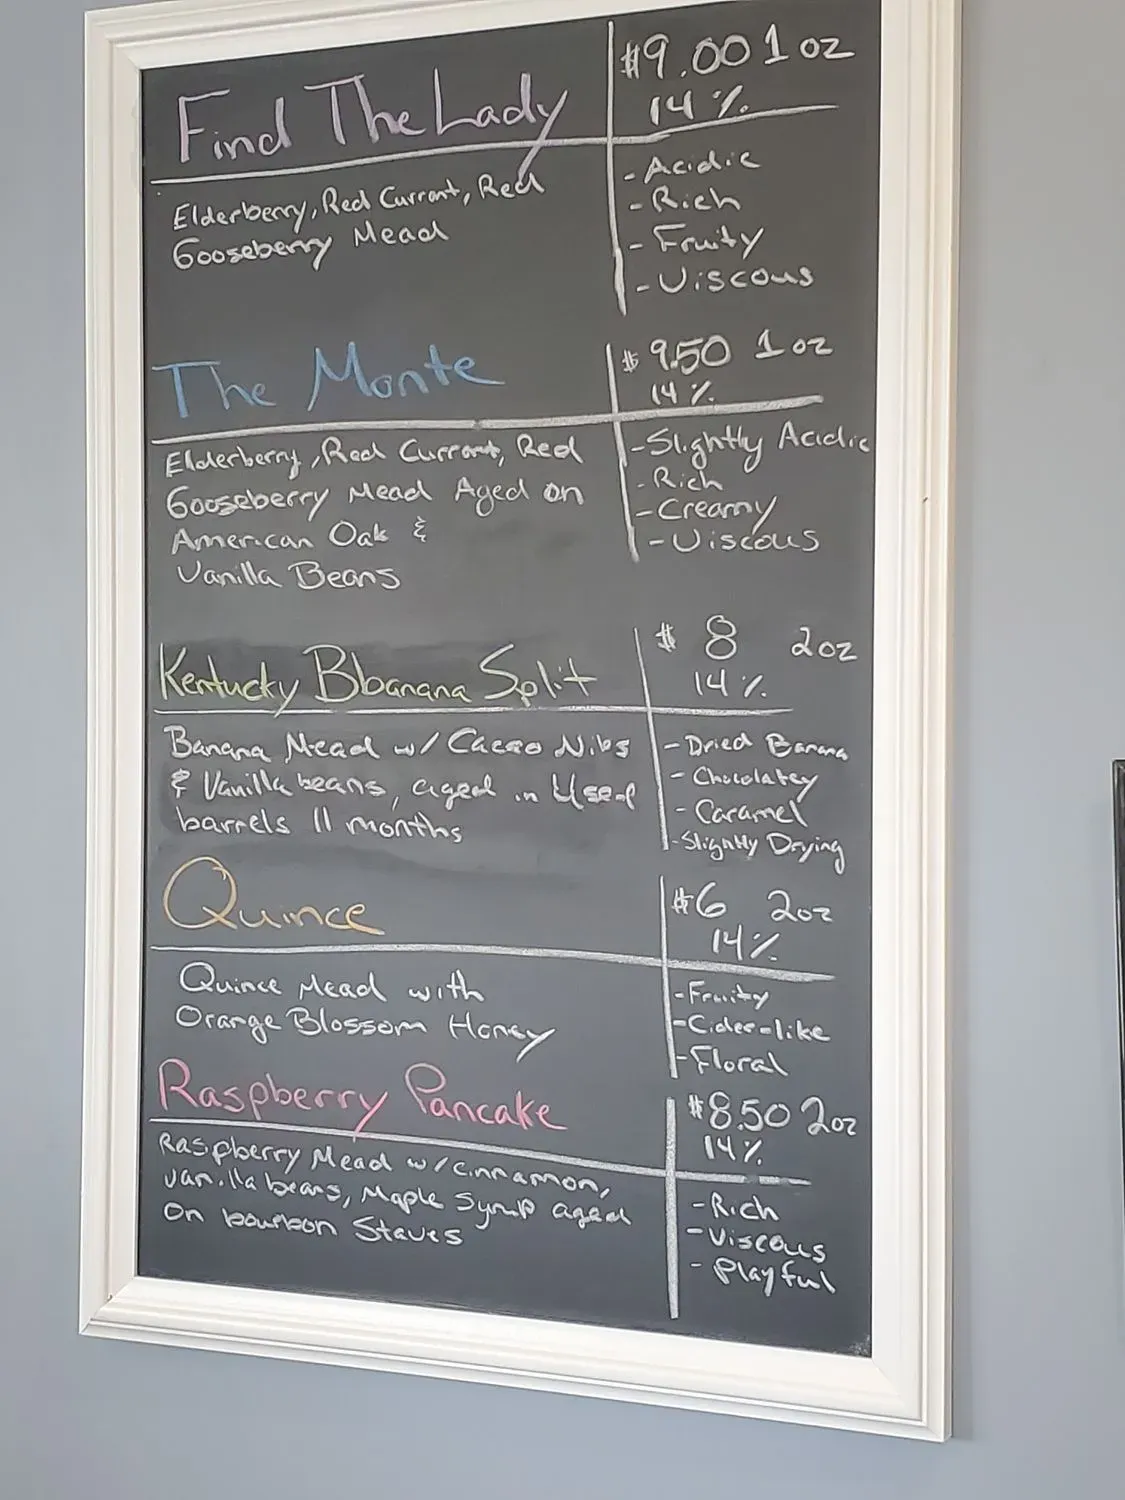 Find The Lady
$9.00 1 oz
14%
Elderberry, Red Currant, Red
Gooseberry Mead
- Acidic
- Rich
- Fruity
- Viscous
The Monte
$9.50 1 oz
14%
Elderberry, Red Currant, Red
Gooseberry Mead Aged on
American Oak &
Vanilla Beans
- Slightly Acidic
- Rich
- Creamy
- Viscous
Kentucky Bbanana Split
$8 2oz
14%
Banana Mead w/ Cacao Nibs
& Vanilla beans, aged in Used
barrels 11 months
- Dried Banana
- Chocolatey
- Caramel
- Slightly Drying
Quince
$6 2oz
14%
Quince Mead with
Orange Blossom Honey
- Fruity
- Cider-like
- Floral
Raspberry Pancake
$8.50 2oz
14%
Raspberry Mead w/cinnamon,
vanilla beans, Maple Syrup aged
on bourbon Staves
- Rich
- Viscous
- Playful